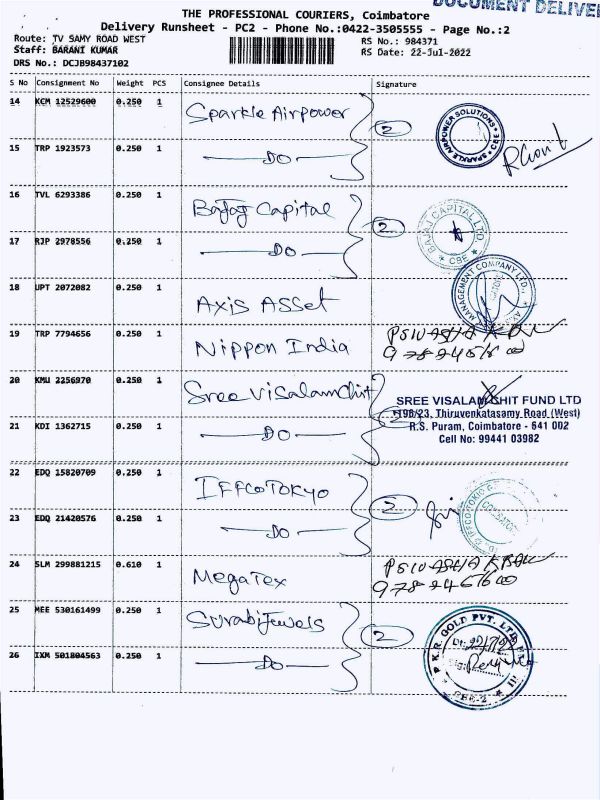 DOCUMENT DELIVE
THE PROFESSIONAL COURIERS, Coimbatore
Delivery Runsheet - PC2 - Phone No.:0422-3505555 - Page No.:2
Route: TV SAMY ROAD WEST RS No.: 984371
Staff: BARANI KUMAR RS Date: 22-Jul-2022
DRS No.: DCJB98437102
S No Consignment No Weight PCS Consignee Details Signature
14 KCM 12529600 0.250 1 Sparkle Airpower
2
SPARKLE AIRPOWER SOLUTIONS * CBE *
15 TRP 1923573 0.250 1 DO
16 TVL 6293386 0.250 1 Bajaj Capital
2
BAJAJ CAPITAL LTD * CBE *
17 RJP 2978556 0.250 1 DO
18 UPT 2072082 0.250 1 Axis Asset
MANAGEMENT COMPANY LTD.,
19 TRP 7794656 0.250 1 Nippon India
20 KMU 2256970 0.250 1 Sree Visalam Chit
2
SREE VISALAM CHIT FUND LTD
196/23, Thiruvenkatasamy Road (West)
R.S. Puram, Coimbatore - 641 002
Cell No: 99441 03982
21 KDI 1362715 0.250 1 DO
22 EDQ 15820709 0.250 1 IFFCO TOKYO
2
23 EDQ 21420576 0.250 1 DO
24 SLM 299881215 0.610 1 Megatex
25 MEE 530161499 0.250 1 Surabi Jewels
2
P.K.R. GOLD PVT. LTD.
CBE-2
26 IXM 501804563 0.250 1 DO